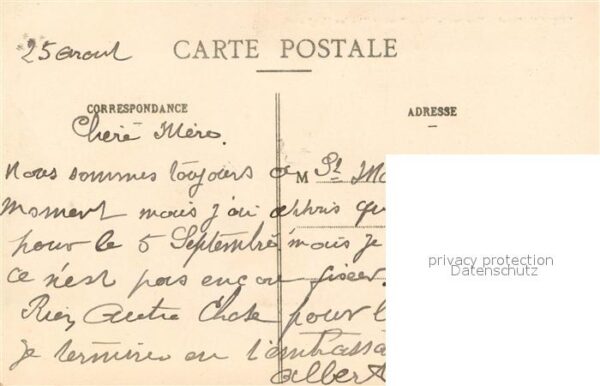 25 Aout
CARTE POSTALE
CORRESPONDANCE
ADRESSE
Cheré Mére.
Nous sommes toujours a St Ma
M
moment mais j'ai appris qu
pour le 5 Septembre mais je
ce n'est pas encore fixer.
Rien Autre Chose pour l
je termine en t'embrassa
Albert
privacy protection
Datenschutz